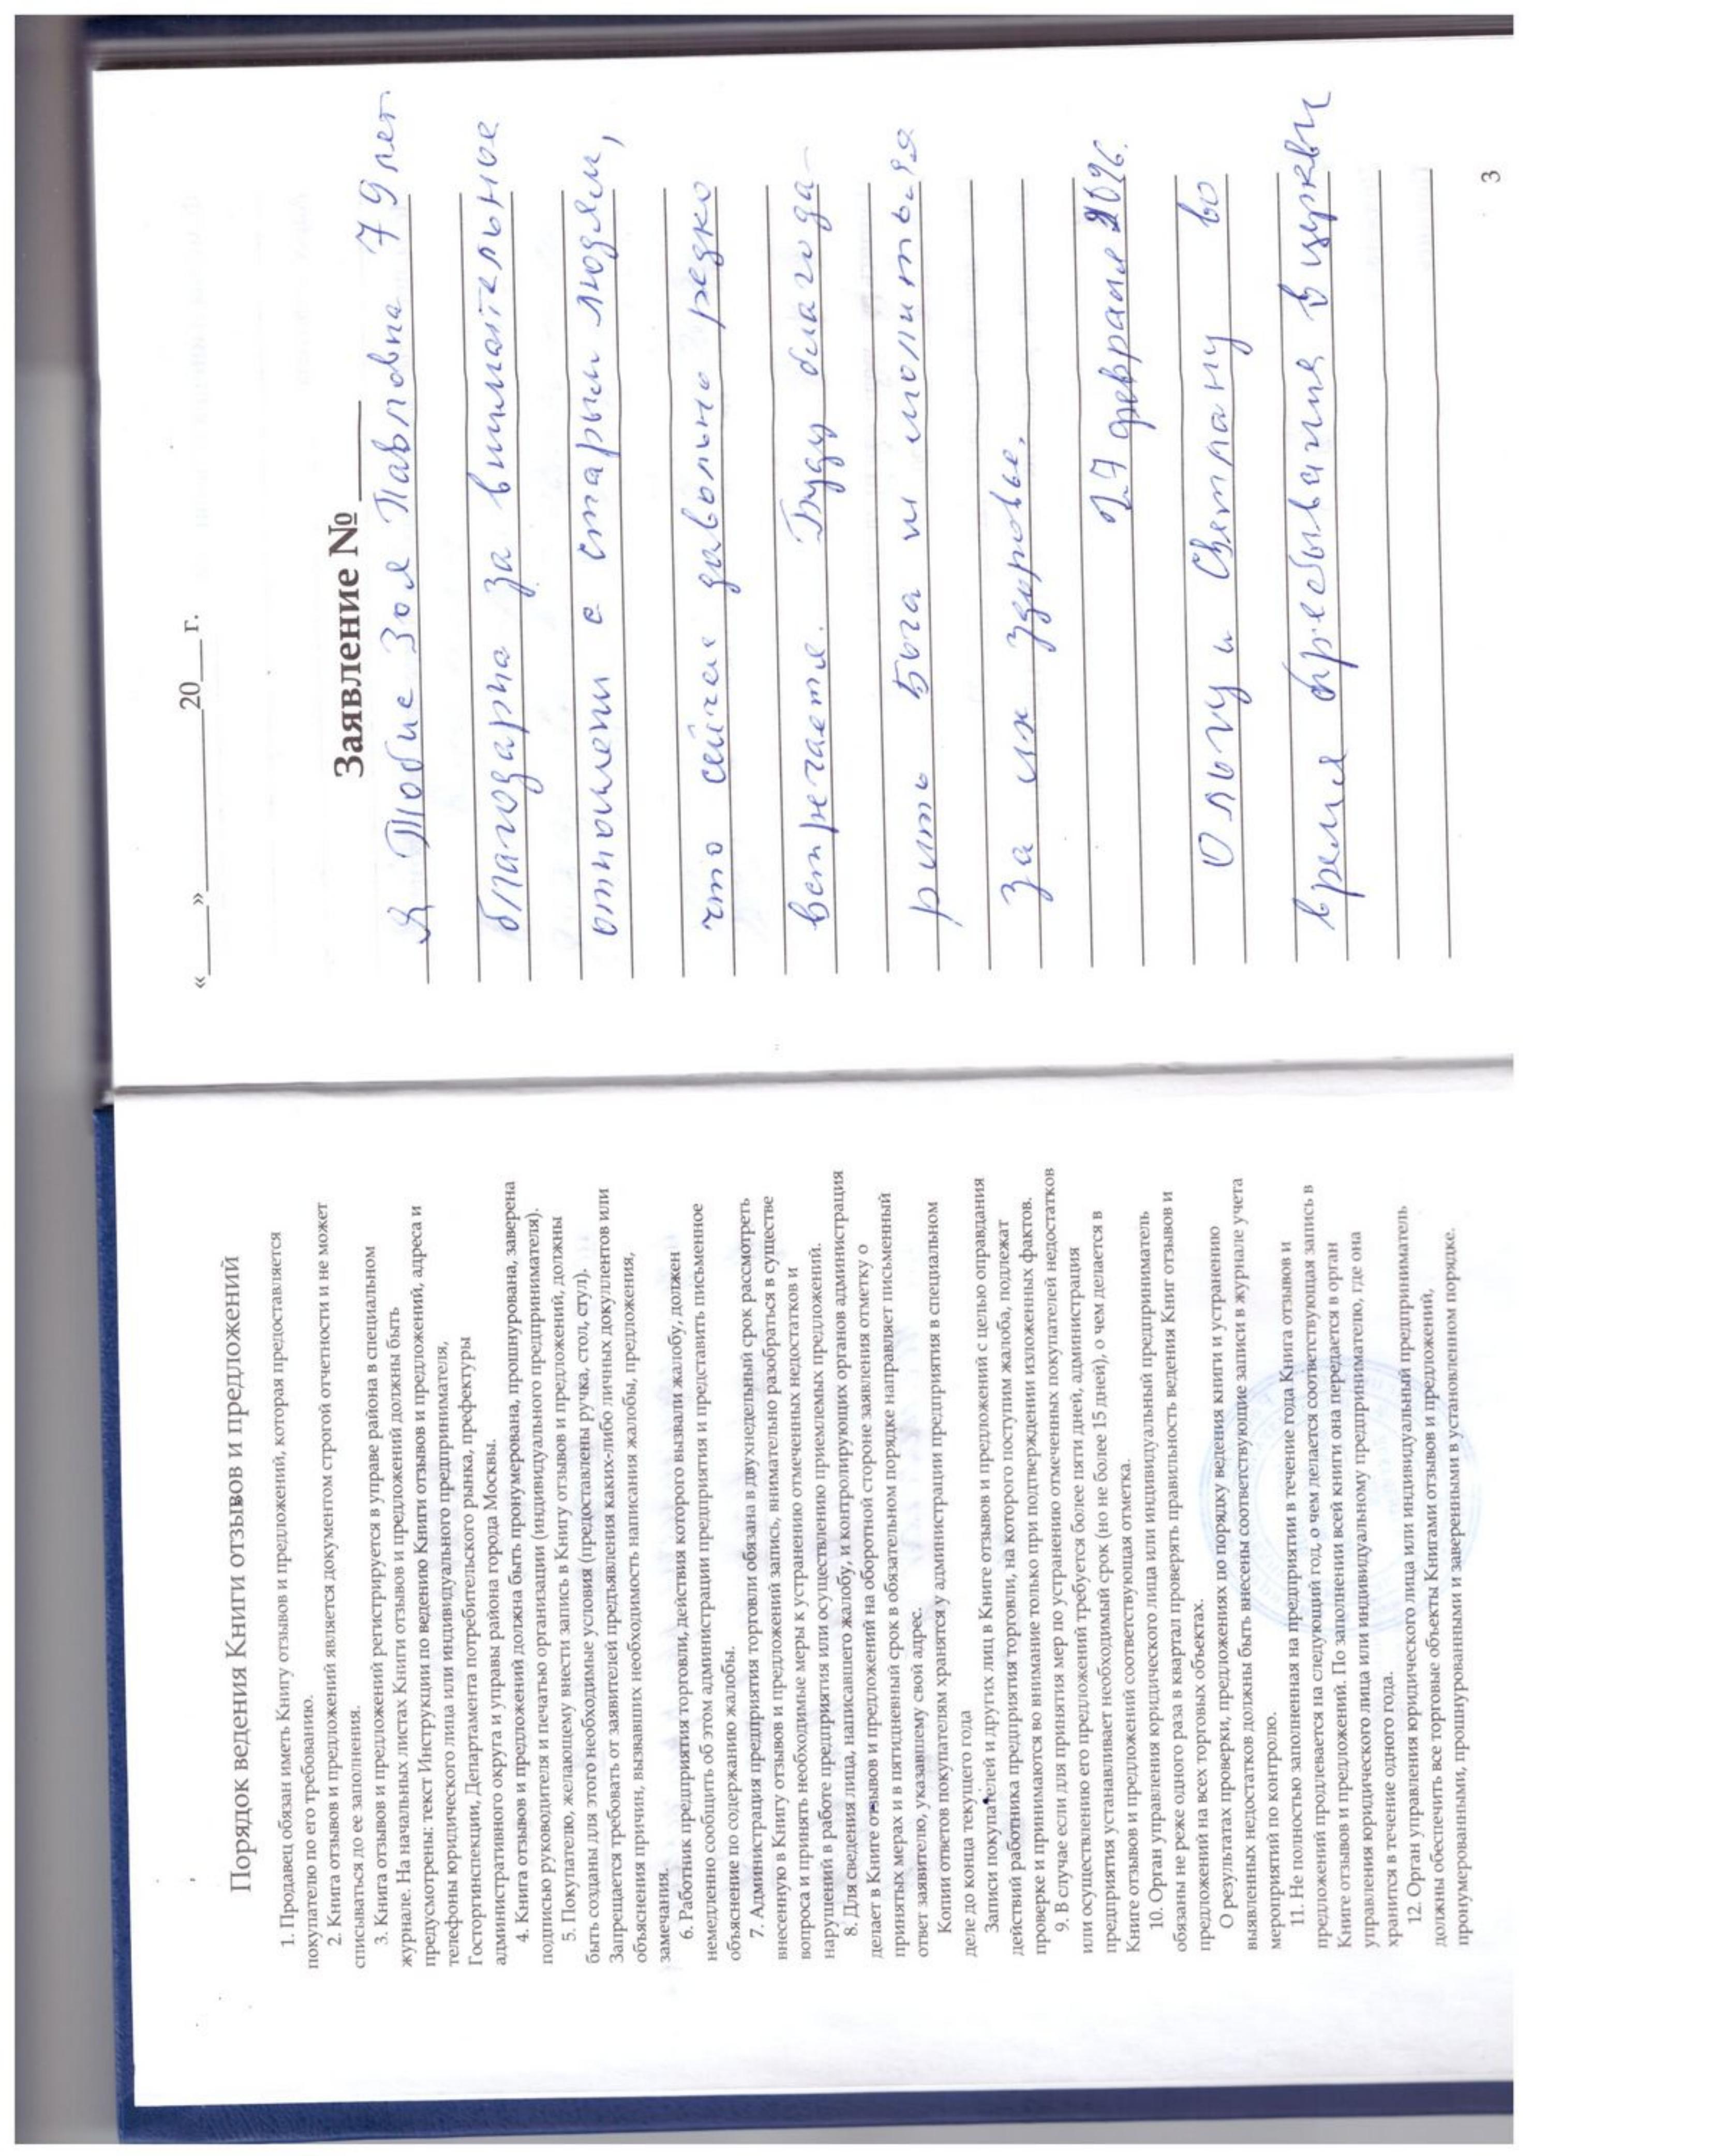 Порядок ведения Книги отзывов и предложений
1. Продавец обязан иметь Книгу отзывов и предложений, которая предоставляется
покупателю по его требованию.
2. Книга отзывов и предложений является документом строгой отчетности и не может
списываться до ее заполнения.
3. Книга отзывов и предложений регистрируется в управе района в специальном
журнале. На начальных листах Книги отзывов и предложений должны быть
предусмотрены: текст Инструкции по ведению Книги отзывов и предложений, адреса и
телефоны юридического лица или индивидуального предпринимателя,
Госторгинспекции, Департамента потребительского рынка, префектуры
административного округа и управы района города Москвы.
4. Книга отзывов и предложений должна быть пронумерована, прошнурована, заверена
подписью руководителя и печатью организации (индивидуального предпринимателя).
5. Покупателю, желающему внести запись в Книгу отзывов и предложений, должны
быть созданы для этого необходимые условия (предоставлены ручка, стол, стул).
Запрещается требовать от заявителей предъявления каких-либо личных документов или
объяснения причин, вызвавших необходимость написания жалобы, предложения,
замечания.
6. Работник предприятия торговли, действия которого вызвали жалобу, должен
немедленно сообщить об этом администрации предприятия и представить письменное
объяснение по содержанию жалобы.
7. Администрация предприятия торговли обязана в двухнедельный срок рассмотреть
внесенную в Книгу отзывов и предложений запись, внимательно разобраться в существе
вопроса и принять необходимые меры к устранению отмеченных недостатков и
нарушений в работе предприятия или осуществлению приемлемых предложений.
8. Для сведения лица, написавшего жалобу, и контролирующих органов администрация
делает в Книге отзывов и предложений на оборотной стороне заявления отметку о
принятых мерах и в пятидневный срок в обязательном порядке направляет письменный
ответ заявителю, указавшему свой адрес.
Копии ответов покупателям хранятся у администрации предприятия в специальном
деле до конца текущего года
Записи покупателей и других лиц в Книге отзывов и предложений с целью оправдания
действий работника предприятия торговли, на которого поступим жалоба, подлежат
проверке и принимаются во внимание только при подтверждении изложенных фактов.
9. В случае если для принятия мер по устранению отмеченных покупателей недостатков
или осуществлению его предложений требуется более пяти дней, администрация
предприятия устанавливает необходимый срок (но не более 15 дней), о чем делается в
Книге отзывов и предложений соответствующая отметка.
10. Орган управления юридического лица или индивидуальный предприниматель
обязаны не реже одного раза в квартал проверять правильность ведения Книг отзывов и
предложений на всех торговых объектах.
О результатах проверки, предложениях по порядку ведения книги и устранению
выявленных недостатков должны быть внесены соответствующие записи в журнале учета
мероприятий по контролю.
11. Не полностью заполненная на предприятии в течение года Книга отзывов и
предложений продлевается на следующий год, о чем делается соответствующая запись в
Книге отзывов и предложений. По заполнении всей книги она передается в орган
управления юридического лица или индивидуальному предпринимателю, где она
хранится в течение одного года.
12. Орган управления юридического лица или индивидуальный предприниматель
должны обеспечить все торговые объекты Книгами отзывов и предложений,
пронумерованными, прошнурованными и заверенными в установленном порядке.
«____»____________20___г.
Заявление №______
Я Тобис Зоя Павловна 79 лет
благодарна за внимательное
отношении с старым людям,
что сейчас довольно редко
встречаетя. Буду благода-
рить Бога и молиться
за их здоровье.
27 февраля 2026.
Ольгу и Светлану во
время пребывания в церкви
3